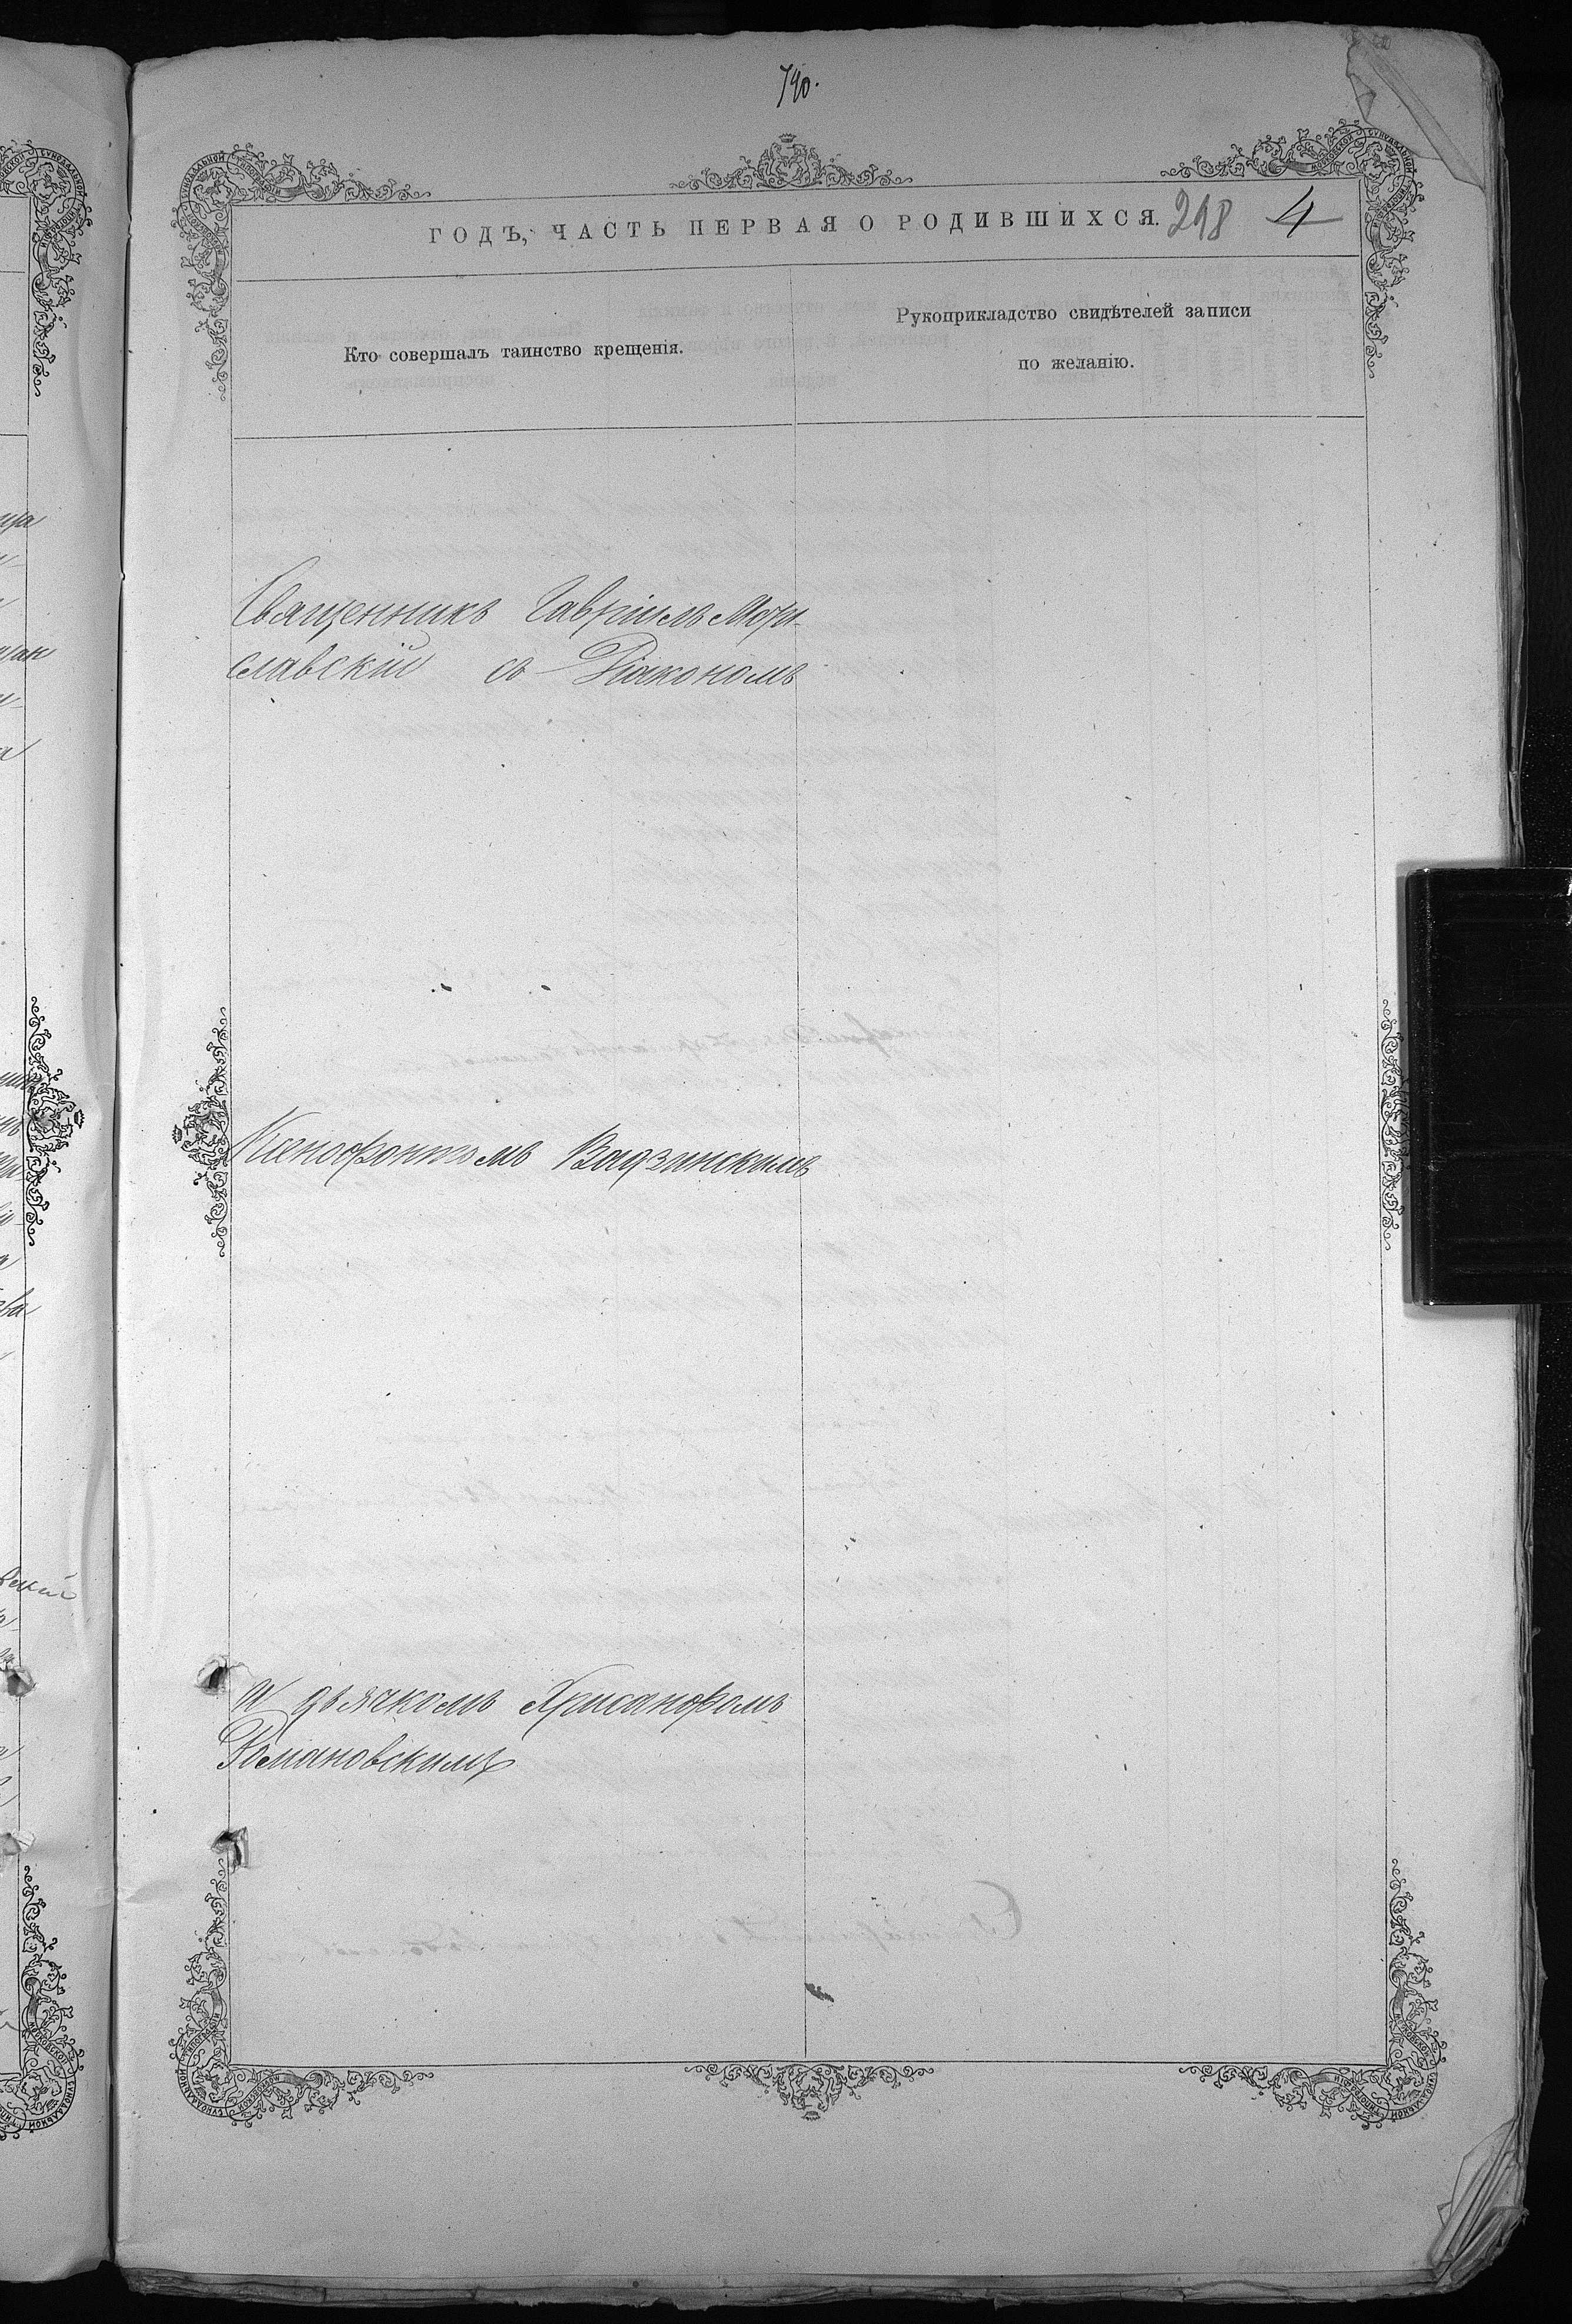 740.
ГОДЪ, ЧАСТЬ ПЕРВАЯ О РОДИВШИХСЯ. 298 4
Кто совершалъ таинство крещенія.
Рукоприкладство свидѣтелей записи
по желанію.
Священникъ Гавріилъ Мори-
славскій съ Діакономъ
Ксенофонтомъ Вадзинскимъ
и дьячкомъ Хрисанфомъ
Романовскимъ